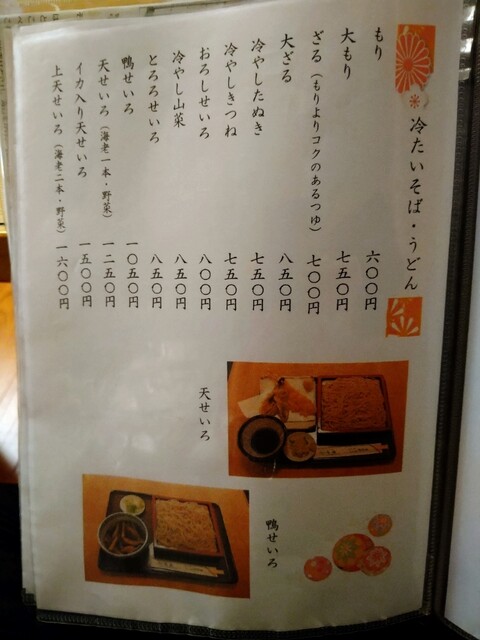 冷たいそば・うどん
もり 六〇〇円
大もり 七五〇円
ざる（もりよりコクのあるつゆ） 七〇〇円
大ざる 八五〇円
冷やしたぬき 七五〇円
冷やしきつね 七五〇円
おろしせいろ 八〇〇円
冷やし山菜 八五〇円
とろろせいろ 八五〇円
鴨せいろ 一〇五〇円
天せいろ（海老一本・野菜） 一二五〇円
イカ入り天せいろ 一五〇〇円
上天せいろ（海老二本・野菜） 一六〇〇円
天せいろ
鴨せいろ